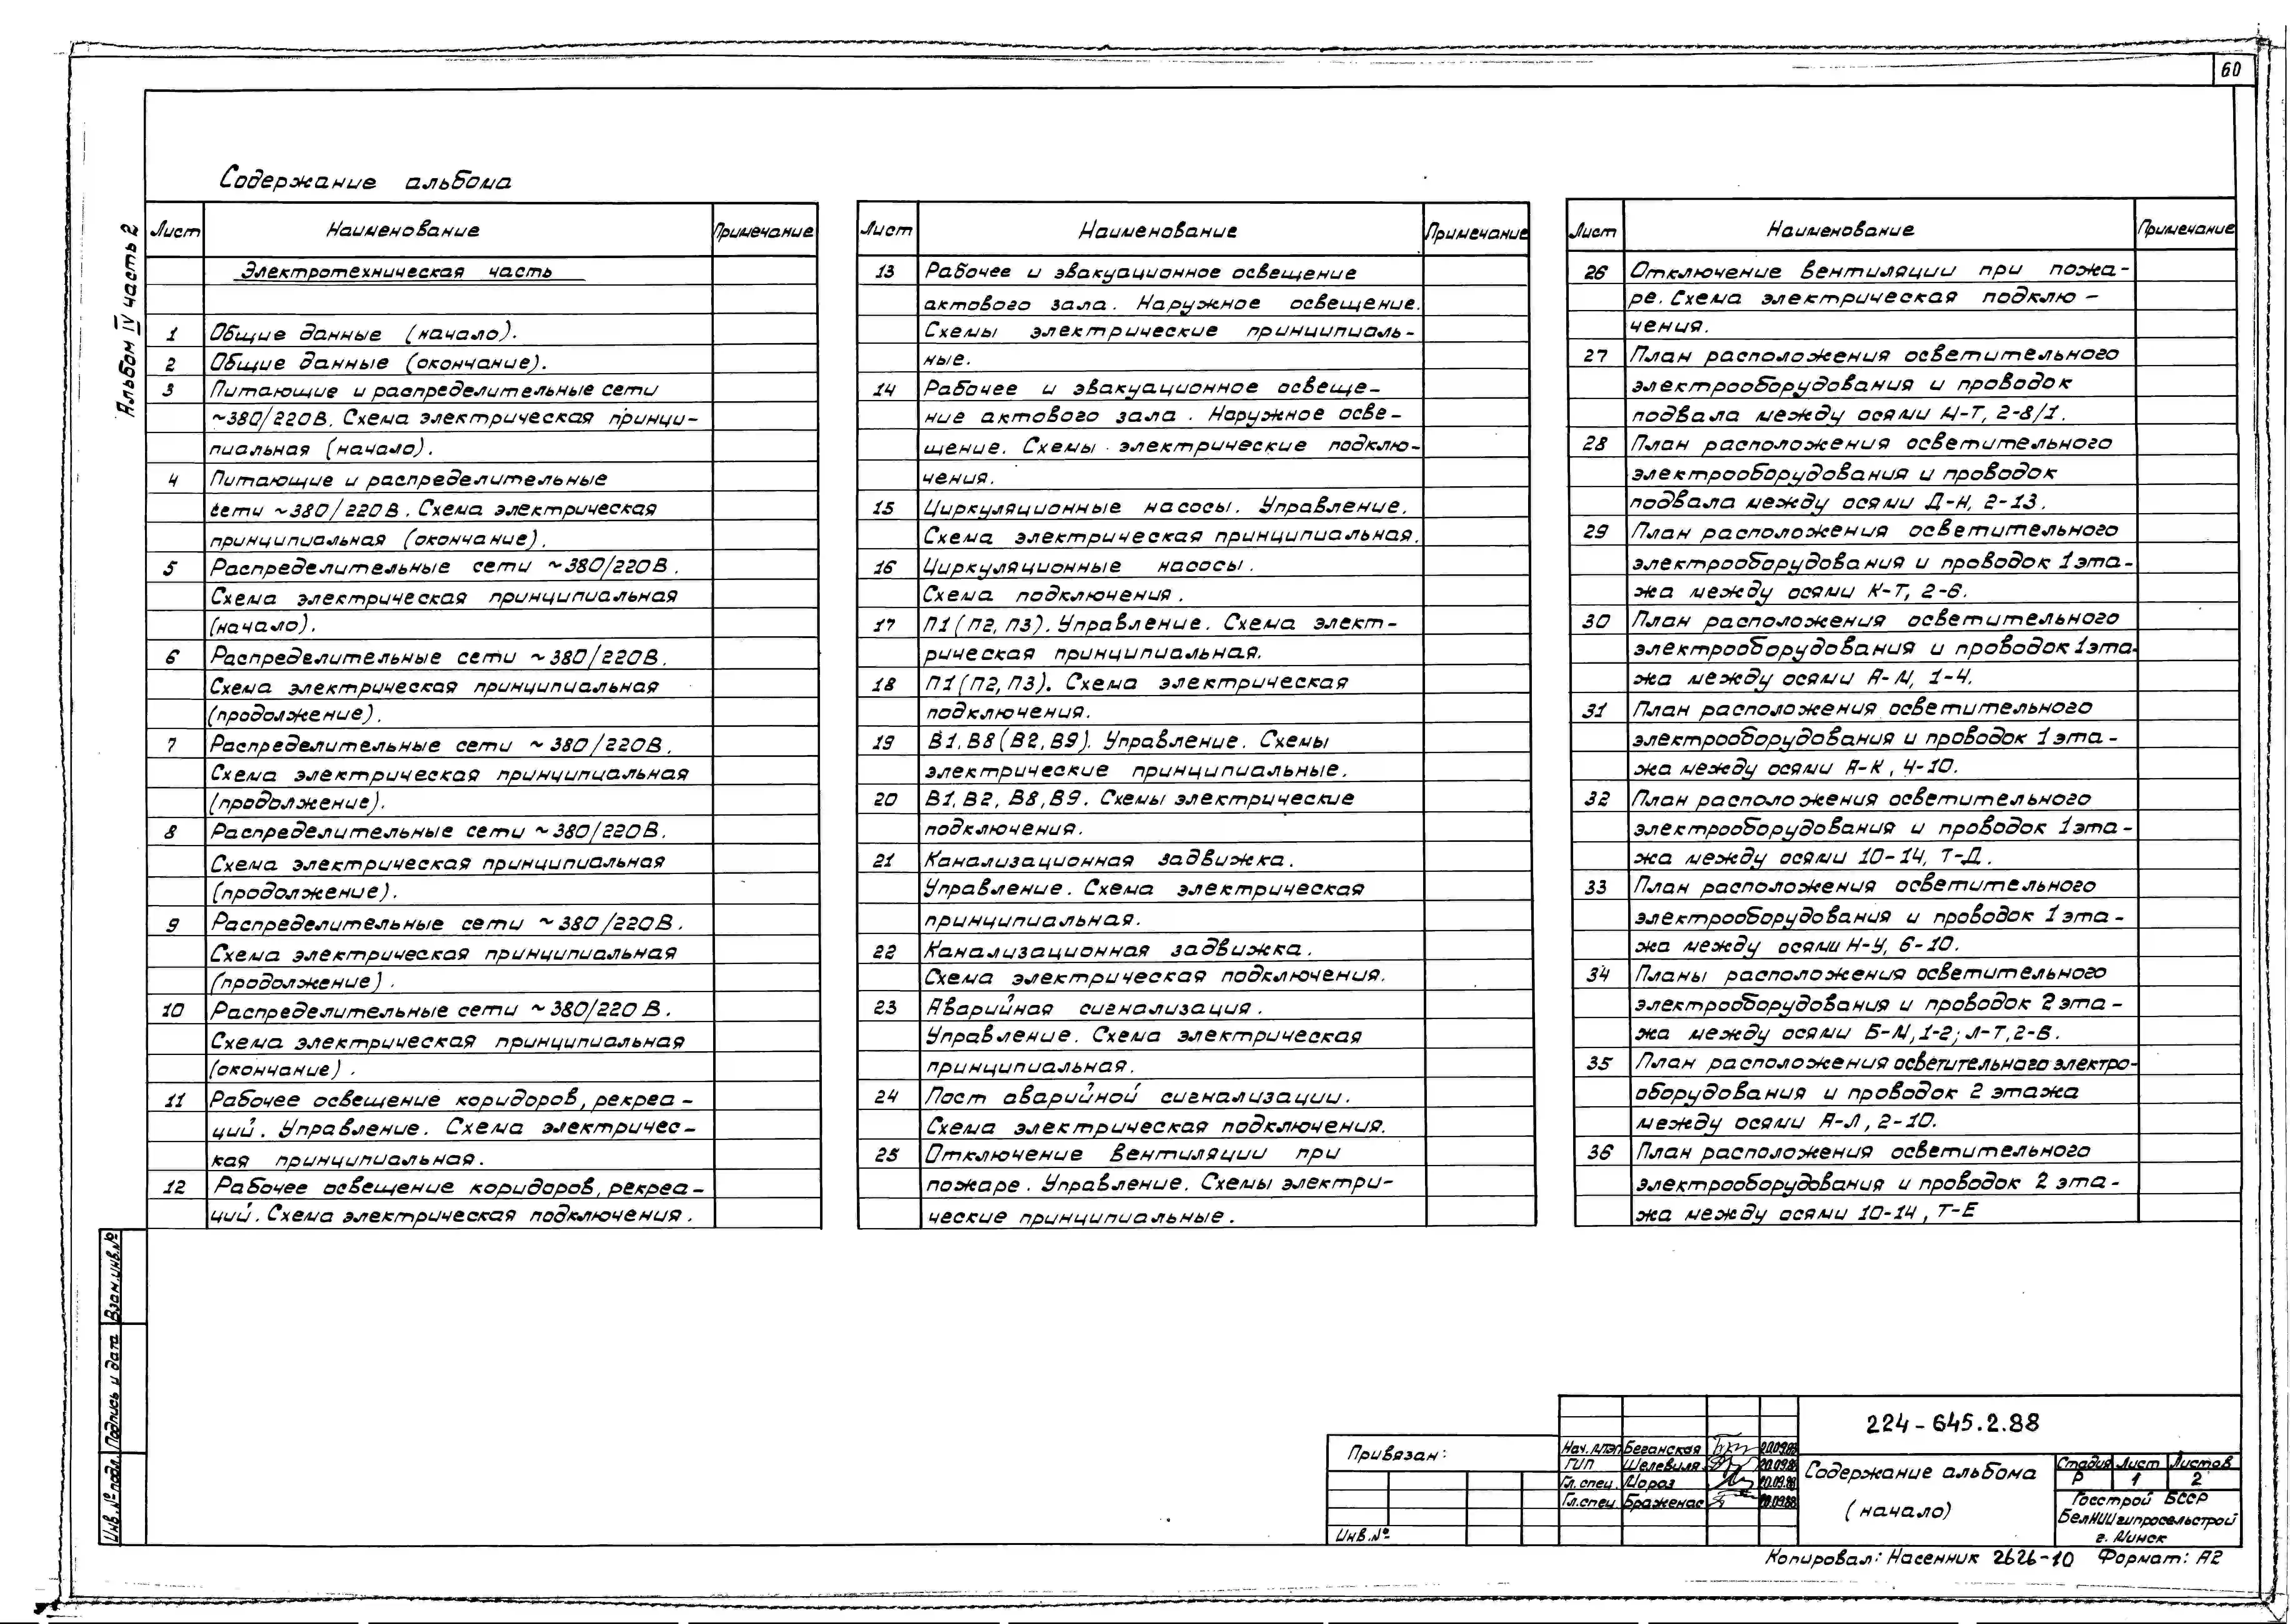 60
Альбом IV часть 2
Содержание альбома
Лист Наименование Примечание
Электротехническая часть
1 Общие данные (начало).
2 Общие данные (окончание).
3 Питающие и распределительные сети
~380/220В. Схема электрическая принци-
пиальная (начало).
4 Питающие и распределительные
сети ~380/220В. Схема электрическая
принципиальная (окончание).
5 Распределительные сети ~380/220В.
Схема электрическая принципиальная
(начало).
6 Распределительные сети ~380/220В.
Схема электрическая принципиальная
(продолжение).
7 Распределительные сети ~380/220В.
Схема электрическая принципиальная
(продолжение).
8 Распределительные сети ~380/220В.
Схема электрическая принципиальная
(продолжение).
9 Распределительные сети ~380/220В.
Схема электрическая принципиальная
(продолжение).
10 Распределительные сети ~380/220В.
Схема электрическая принципиальная
(окончание).
11 Рабочее освещение коридоров, рекреа-
ций. Управление. Схема электричес-
кая принципиальная.
12 Рабочее освещение коридоров, рекреа-
ций. Схема электрическая подключения.
Лист Наименование Примечание
13 Рабочее и эвакуационное освещение
актового зала. Наружное освещение.
Схемы электрические принципиаль-
ные.
14 Рабочее и эвакуационное освеще-
ние актового зала. Наружное осве-
щение. Схемы электрические подклю-
чения.
15 Циркуляционные насосы. Управление.
Схема электрическая принципиальная.
16 Циркуляционные насосы.
Схема подключения.
17 П1(П2, П3). Управление. Схема элект-
рическая принципиальная.
18 П1(П2, П3). Схема электрическая
подключения.
19 В1, В8(В2, В9). Управление. Схемы
электрические принципиальные.
20 В1, В2, В8, В9. Схемы электрические
подключения.
21 Канализационная задвижка.
Управление. Схема электрическая
принципиальная.
22 Канализационная задвижка.
Схема электрическая подключения.
23 Аварийная сигнализация.
Управление. Схема электрическая
принципиальная.
24 Пост аварийной сигнализации.
Схема электрическая подключения.
25 Отключение вентиляции при
пожаре. Управление. Схемы электри-
ческие принципиальные.
Лист Наименование Примечание
26 Отключение вентиляции при пожа-
ре. Схема электрическая подклю-
чения.
27 План расположения осветительного
электрооборудования и проводок
подвала между осями М-Т, 2-8/1.
28 План расположения осветительного
электрооборудования и проводок
подвала между осями Д-Н, 2-13.
29 План расположения осветительного
электрооборудования и проводок 1 эта-
жа между осями К-Т, 2-6.
30 План расположения осветительного
электрооборудования и проводок 1 эта-
жа между осями А-М, 1-4.
31 План расположения осветительного
электрооборудования и проводок 1 эта-
жа между осями А-К, 4-10.
32 План расположения осветительного
электрооборудования и проводок 1 эта-
жа между осями 10-14, Т-Д.
33 План расположения осветительного
электрооборудования и проводок 1 эта-
жа между осями Н-У, 6-10.
34 Планы расположения осветительного
электрооборудования и проводок 2 эта-
жа между осями Б-М, 1-2; Л-Т, 2-В.
35 План расположения осветительного электро-
оборудования и проводок 2 этажа
между осями А-Л, 2-10.
36 План расположения осветительного
электрооборудования и проводок 2 эта-
жа между осями 10-14, Т-Е
Взам.инв.№
Подпись и дата
Инв.№ подл.
Привязан:
Инв.№
Нач. Беганская 20.09.88
ГИП Шелевиля 20.09.88
Гл.спец. Мороз 20.09.88
Гл.спец. Браженас 20.09.88
224-645.2.88
Содержание альбома
(начало)
Стадия Лист Листов
Р 1 2
Госстрой БССР
БелНИИгипросельстрой
г. Минск
Копировал: Насенник 2626-10 Формат: А2